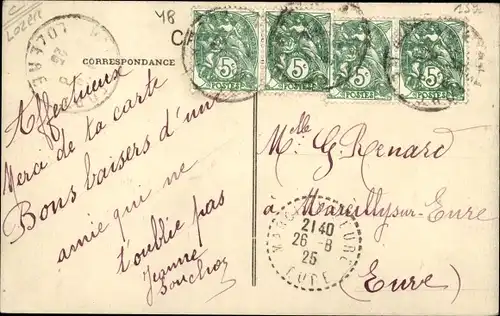 Lozère
48
CORRESPONDANCE
5c 5c 5c 5c
POSTES POSTES POSTES POSTES
Affectueux
Merci de ta carte
Bons baisers d'une
amie qui ne
t'oublie pas
Jeanne
Mlle G Renard
à Marcilly sur Eure
(Eure)
2140
26 - 8
25
EURE